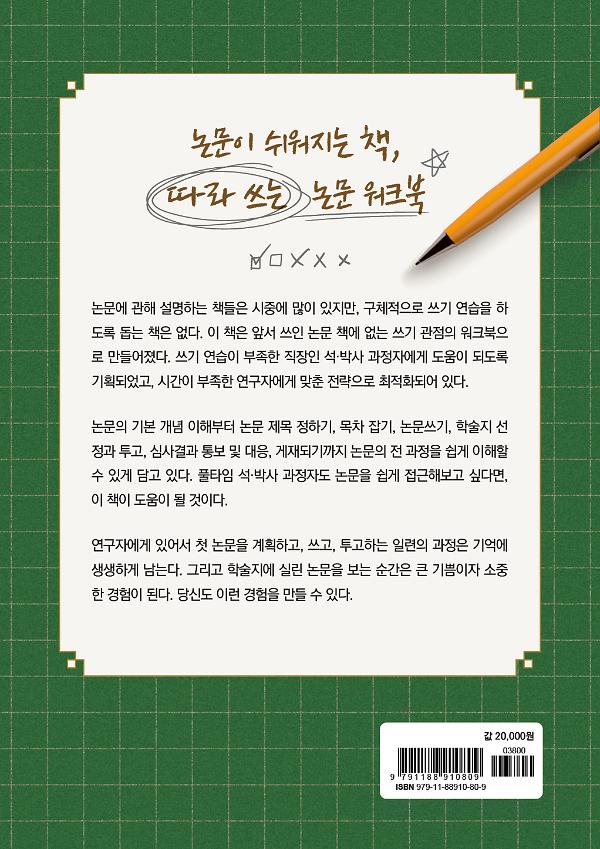 논문이 쉬워지는 책,
따라 쓰는 논문 워크북
논문에 관해 설명하는 책들은 시중에 많이 있지만, 구체적으로 쓰기 연습을 하
도록 돕는 책은 없다. 이 책은 앞서 쓰인 논문 책에 없는 쓰기 관점의 워크북으
로 만들어졌다. 쓰기 연습이 부족한 직장인 석·박사 과정자에게 도움이 되도록
기획되었고, 시간이 부족한 연구자에게 맞춘 전략으로 최적화되어 있다.
논문의 기본 개념 이해부터 논문 제목 정하기, 목차 잡기, 논문쓰기, 학술지 선
정과 투고, 심사결과 통보 및 대응, 게재되기까지 논문의 전 과정을 쉽게 이해할
수 있게 담고 있다. 풀타임 석·박사 과정자도 논문을 쉽게 접근해보고 싶다면,
이 책이 도움이 될 것이다.
연구자에게 있어서 첫 논문을 계획하고, 쓰고, 투고하는 일련의 과정은 기억에
생생하게 남는다. 그리고 학술지에 실린 논문을 보는 순간은 큰 기쁨이자 소중
한 경험이 된다. 당신도 이런 경험을 만들 수 있다.
값 20,000원
03800
9 791188 910809
ISBN 979-11-88910-80-9